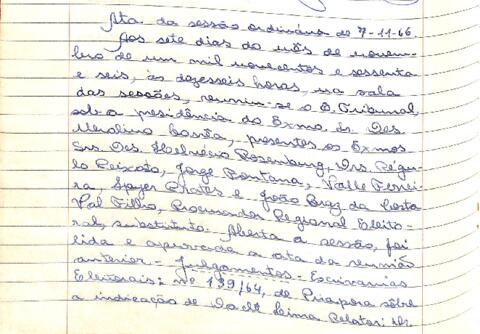 Ata da sessão ordinária de 7-11-66
Aos sete dias do mês de novem-
bro de um mil novecentos e sessenta
e seis, às dezesseis horas, na sala
das sessões, reuniu-se o E. Tribunal,
sob a presidência do Exmo. Sr. Des.
Merolino Corrêa, presentes os Exmos
Srs. Des. Helvécio Rosenburg, Drs. Régu-
lo Peixoto, Jorge Fontana, Valle Ferrei-
ra, Prates e João Braz da Costa
Val Filho, Procurador Regional Eleito-
ral, substituto. Aberta a sessão, foi
lida e aprovada a ata da reunião
anterior - Julgamentos - Escrivanias
Eleitorais: nº 139/64, de Pirapora sôbre
a indicação de Lima Relator: Dr.